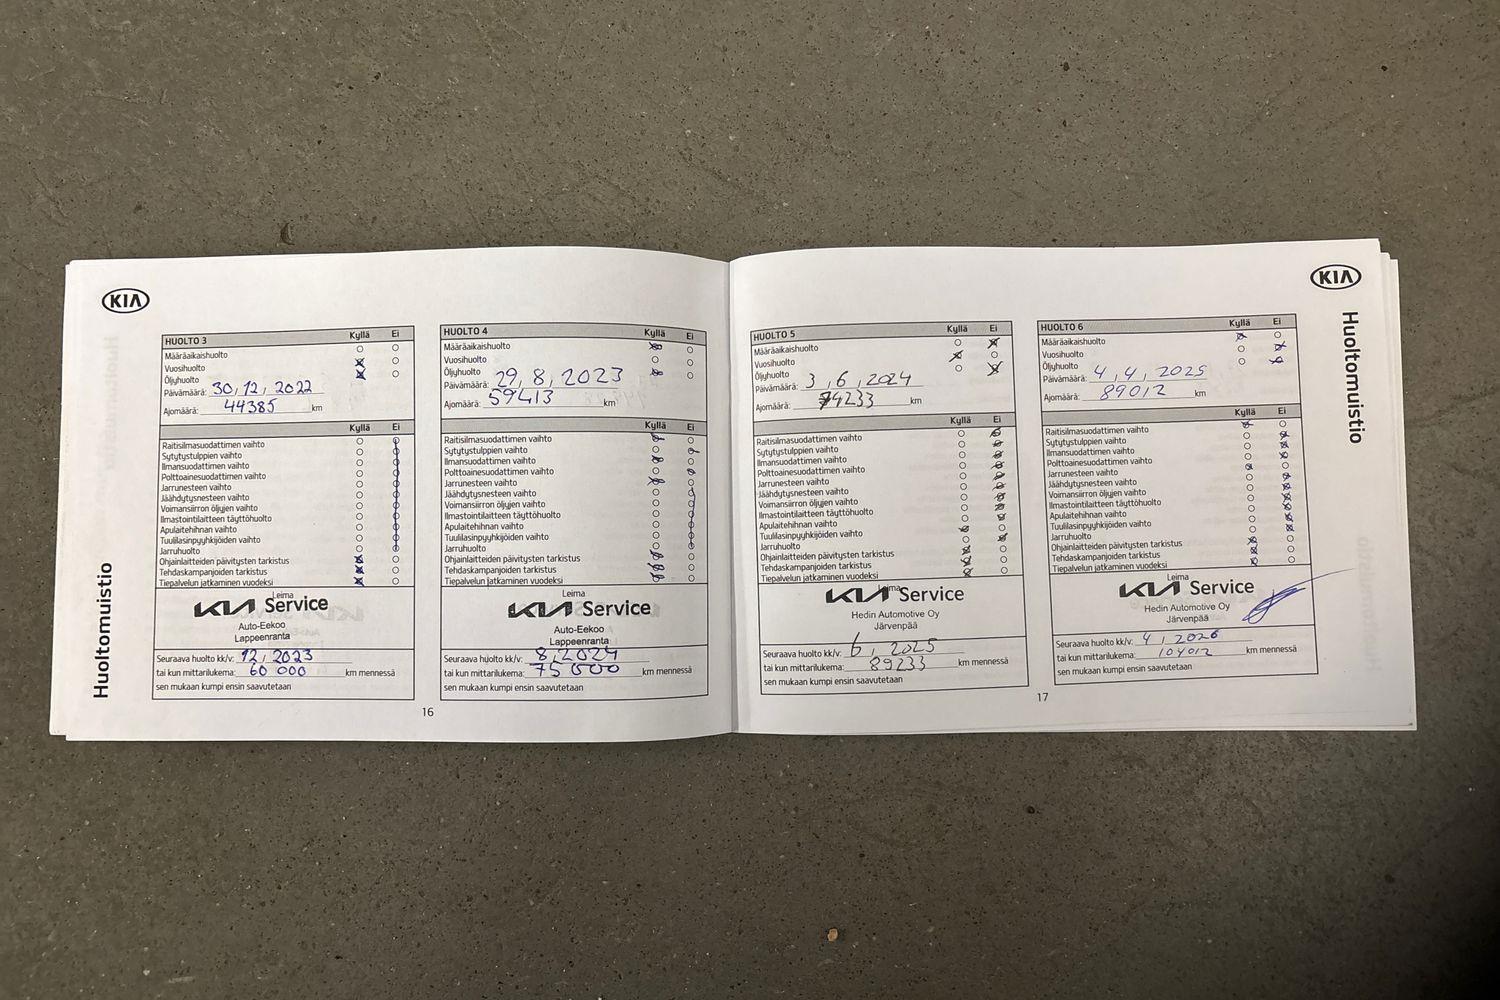 KIA
Huoltomuistio
HUOLTO 3 Kyllä Ei
Määräaikaishuolto
Vuosihuolto
Öljyhuolto
Päivämäärä: 30, 12, 2022
Ajomäärä: 44385 km
Kyllä Ei
Raitisilmasuodattimen vaihto
Sytytystulppien vaihto
Ilmansuodattimen vaihto
Polttoainesuodattimen vaihto
Jarrunesteen vaihto
Jäähdytysnesteen vaihto
Voimansiirron öljyjen vaihto
Ilmastointilaitteen täyttöhuolto
Apulaitehihnan vaihto
Tuulilasinpyyhkijöiden vaihto
Jarruhuolto
Ohjainlaitteiden päivitysten tarkistus
Tehdaskampanjoiden tarkistus
Tiepalvelun jatkaminen vuodeksi
Leima
KIA Service
Auto-Eekoo
Lappeenranta
Seuraava huolto kk/v: 12, 2023
tai kun mittarilukema: 60 000 km mennessä
sen mukaan kumpi ensin saavutetaan
HUOLTO 4 Kyllä Ei
Määräaikaishuolto
Vuosihuolto
Öljyhuolto
Päivämäärä: 29, 8, 2023
Ajomäärä: 59413 km
Kyllä Ei
Raitisilmasuodattimen vaihto
Sytytystulppien vaihto
Ilmansuodattimen vaihto
Polttoainesuodattimen vaihto
Jarrunesteen vaihto
Jäähdytysnesteen vaihto
Voimansiirron öljyjen vaihto
Ilmastointilaitteen täyttöhuolto
Apulaitehihnan vaihto
Tuulilasinpyyhkijöiden vaihto
Jarruhuolto
Ohjainlaitteiden päivitysten tarkistus
Tehdaskampanjoiden tarkistus
Tiepalvelun jatkaminen vuodeksi
Leima
KIA Service
Auto-Eekoo
Lappeenranta
Seuraava huolto kk/v: 8, 2024
tai kun mittarilukema: 75 000 km mennessä
sen mukaan kumpi ensin saavutetaan
16
HUOLTO 5 Kyllä Ei
Määräaikaishuolto
Vuosihuolto
Öljyhuolto
Päivämäärä: 3, 6, 2024
Ajomäärä: 74233 km
Kyllä Ei
Raitisilmasuodattimen vaihto
Sytytystulppien vaihto
Ilmansuodattimen vaihto
Polttoainesuodattimen vaihto
Jarrunesteen vaihto
Jäähdytysnesteen vaihto
Voimansiirron öljyjen vaihto
Ilmastointilaitteen täyttöhuolto
Apulaitehihnan vaihto
Tuulilasinpyyhkijöiden vaihto
Jarruhuolto
Ohjainlaitteiden päivitysten tarkistus
Tehdaskampanjoiden tarkistus
Tiepalvelun jatkaminen vuodeksi
Leima
KIA Service
Hedin Automotive Oy
Järvenpää
Seuraava huolto kk/v: 6, 2025
tai kun mittarilukema: 89233 km mennessä
sen mukaan kumpi ensin saavutetaan
HUOLTO 6 Kyllä Ei
Määräaikaishuolto
Vuosihuolto
Öljyhuolto
Päivämäärä: 4, 4, 2025
Ajomäärä: 89012 km
Kyllä Ei
Raitisilmasuodattimen vaihto
Sytytystulppien vaihto
Ilmansuodattimen vaihto
Polttoainesuodattimen vaihto
Jarrunesteen vaihto
Jäähdytysnesteen vaihto
Voimansiirron öljyjen vaihto
Ilmastointilaitteen täyttöhuolto
Apulaitehihnan vaihto
Tuulilasinpyyhkijöiden vaihto
Jarruhuolto
Ohjainlaitteiden päivitysten tarkistus
Tehdaskampanjoiden tarkistus
Tiepalvelun jatkaminen vuodeksi
Leima
KIA Service
Hedin Automotive Oy
Järvenpää
Seuraava huolto kk/v: 4, 2026
tai kun mittarilukema: 104012 km mennessä
sen mukaan kumpi ensin saavutetaan
17
KIA
Huoltomuistio